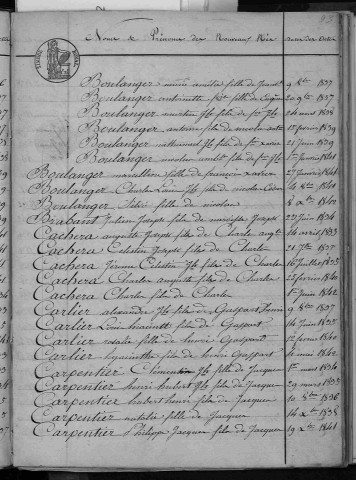 Noms & Prénoms des Nouveaux Nés
TIMBRE ROYAL
Boulanger marie amélie fille de 9 8bre 1837
Boulanger antoinette fille de 20 9bre 1837
Boulanger martin fils de 04 mai 1838
Boulanger antoine fils de 15 février 1839
Boulanger nathanael fils de xavier 21 juin 1839
Boulanger nicolas fils de février 1841
Boulanger maximilien fils de françois xavier 27 1841
Boulanger Charles Louis fils de nicolas 4 8bre 1841
Boulanger fille de nicolas 8 Xbre 1842
Brabant Julien Joseph fils de Joseph 22 juin 1834
Cachera auguste Joseph fils de Charles 14 avril 1833
Cachera Célestin Joseph fils de Charles 21 1837
Cachera Célestin fils de Charles 16 Juillet 1835
Cachera Charles auguste fils de Charles 25 février 1840
Cachera Charles fils de Charles 1er juin 1842
Carlier alexandre fils de Gaspart 9 8bre 1837
Carlier Louis hiacinthe fils de Gaspart 14 Juin 1835
Carlier fille de henri Gaspart 12 février 1840
Carlier hyacinthe fils de henri Gaspart 4 mai 1842
Carpentier Clémentine fille de Jacques 1er mars 1834
Carpentier henri hubert fils de Jacques 29 mars 1835
Carpentier hubert henri fils de Jacques 10 8bre 1836
Carpentier natalie fille de Jacques 14 Xbre 1838
Carpentier Philippe Jacques fils de Jacques 19 Xbre 1841